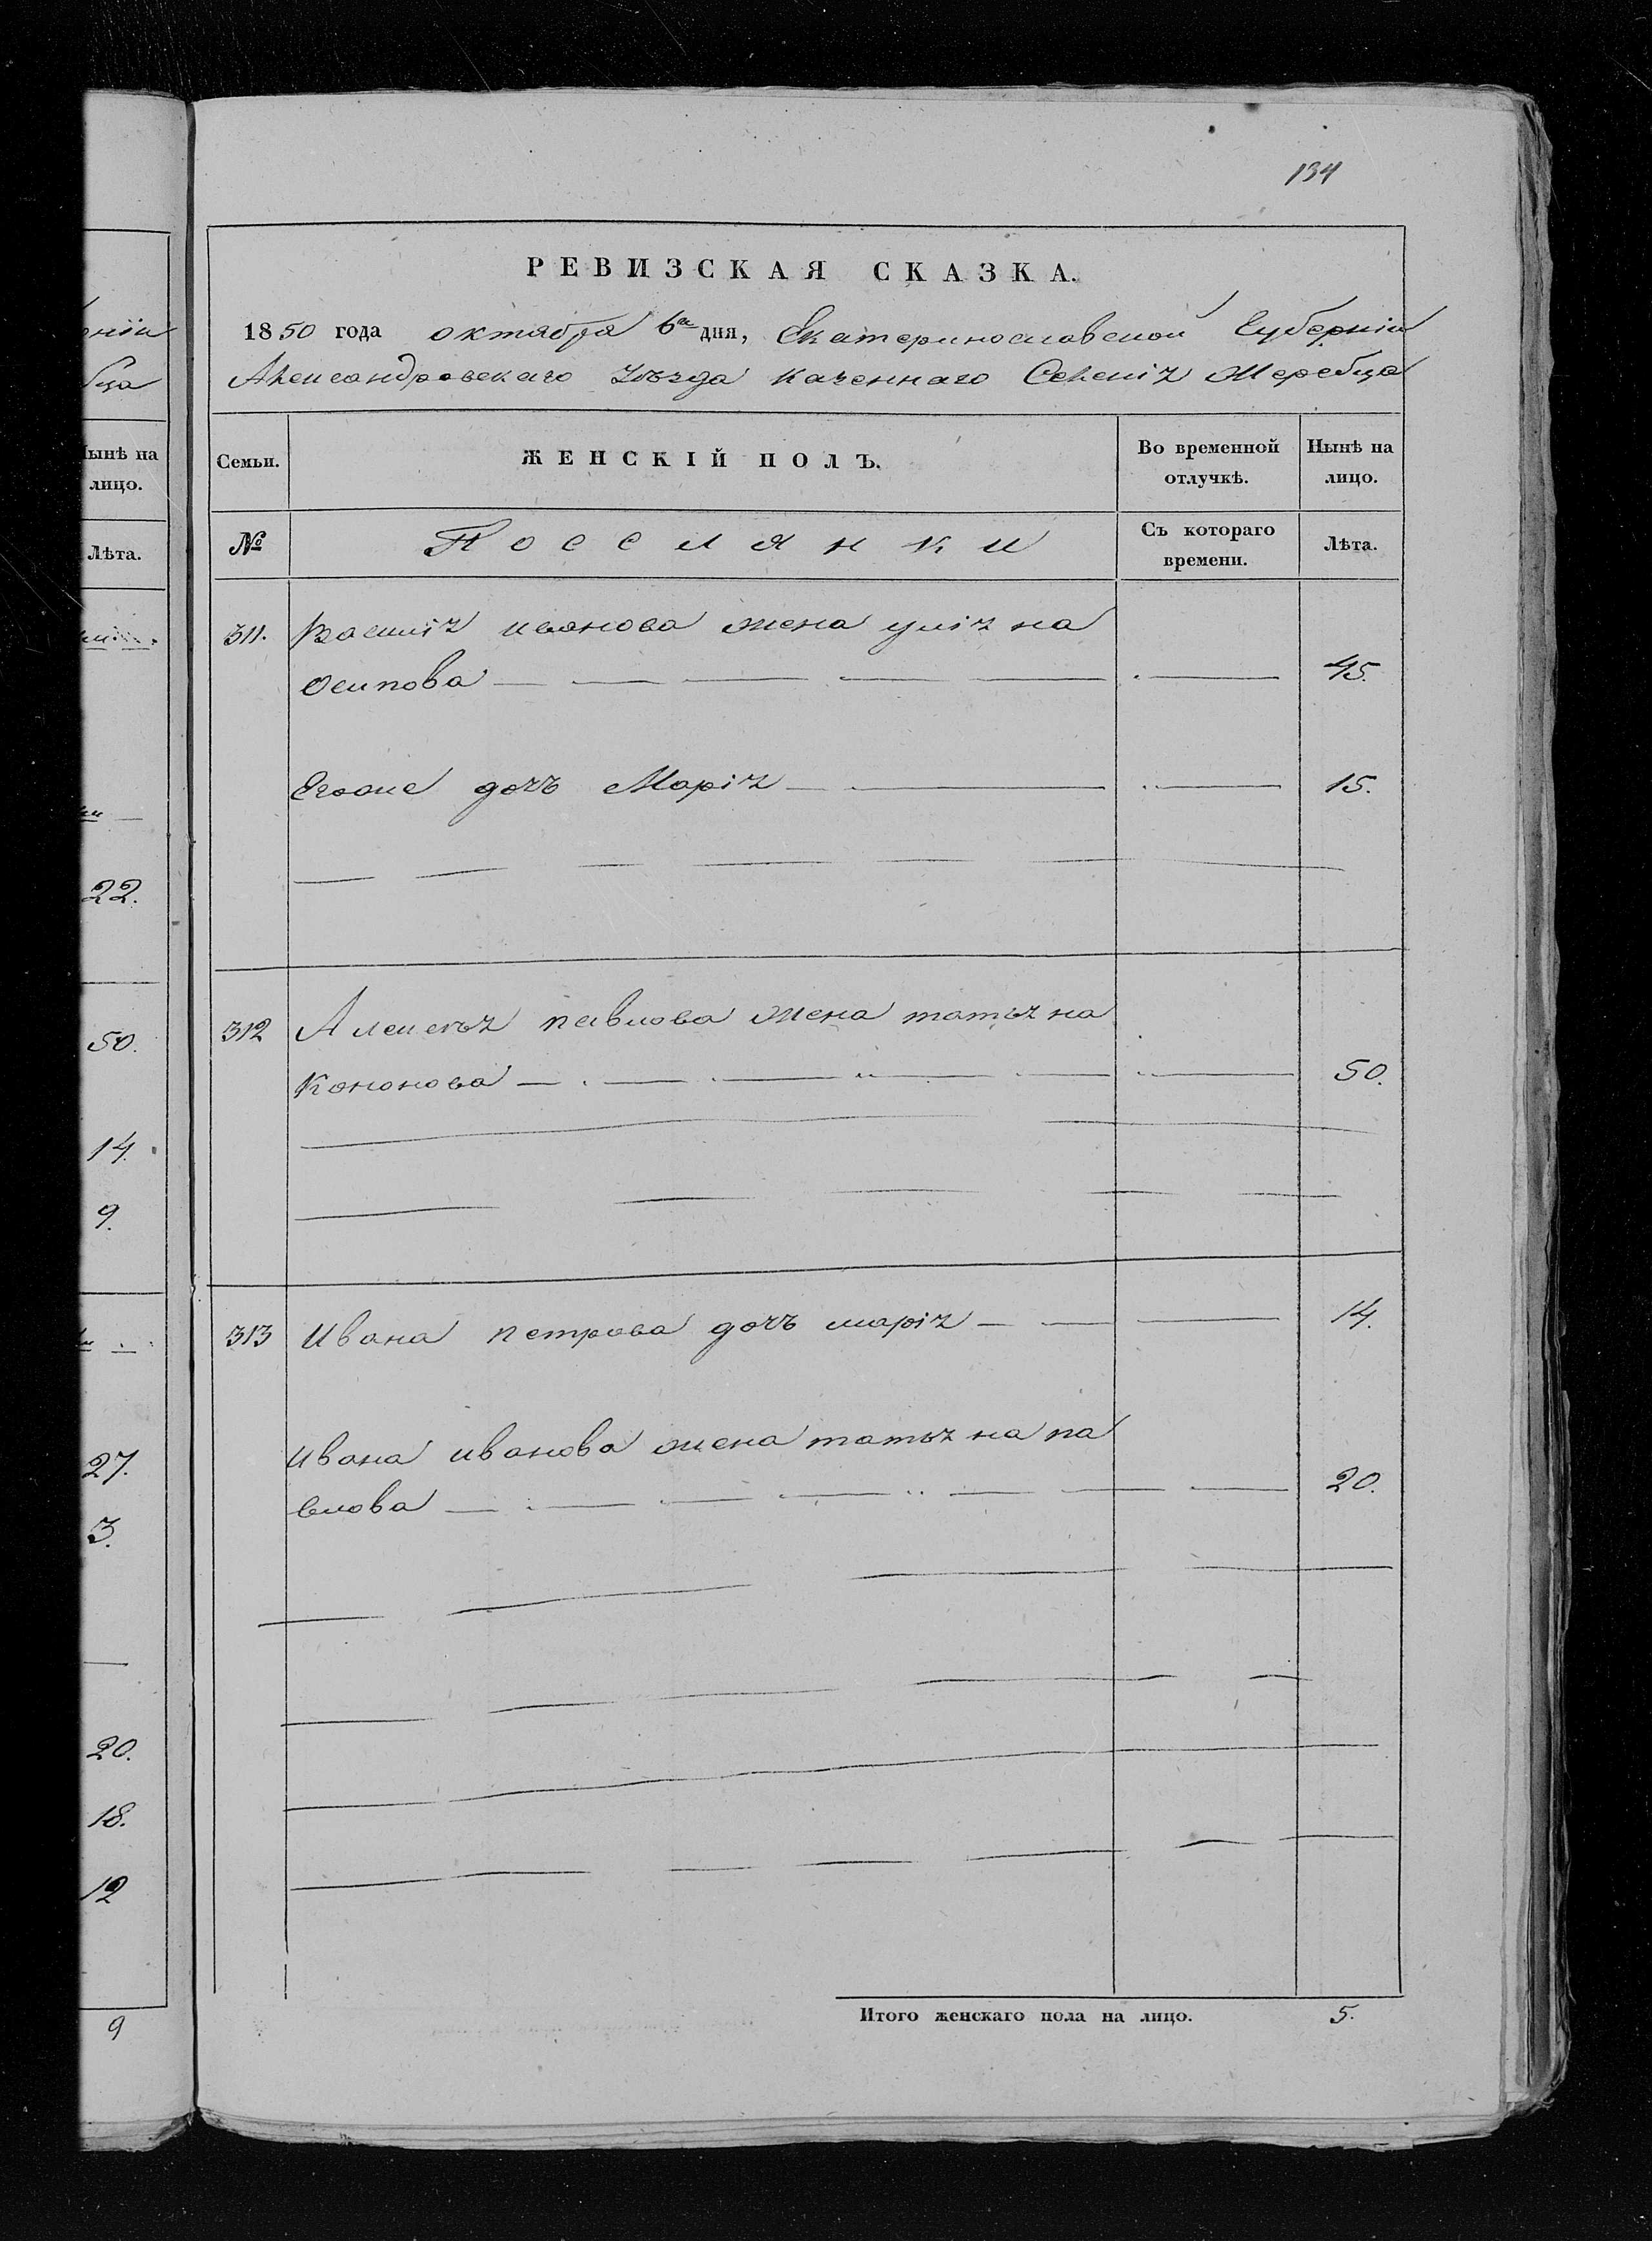 ніи
ца
Нынѣ на
лицо.
Лѣта.
22.
50.
14.
9.
27.
3.
20.
18.
12
9
134
РЕВИЗСКАЯ СКАЗКА.
1850 года октября 6го дня, Екатеринославской Губерніи
Александровскаго уѣзда казеннаго Селенія Жеребца
Семьи. ЖЕНСКІЙ ПОЛЪ. Во временной отлучкѣ. Нынѣ на лицо.
№ Посселянки Съ котораго времени. Лѣта.
311. Василія иванова жена уліяна
Осипова 45.
Егоже дочъ Марія 15.
312 Алексѣя павлова жена татьяна
Кононова 50.
313 Ивана петрова дочъ марія 14.
Ивана иванова жена татьяна па
влова 20.
Итого женскаго пола на лицо. 5.